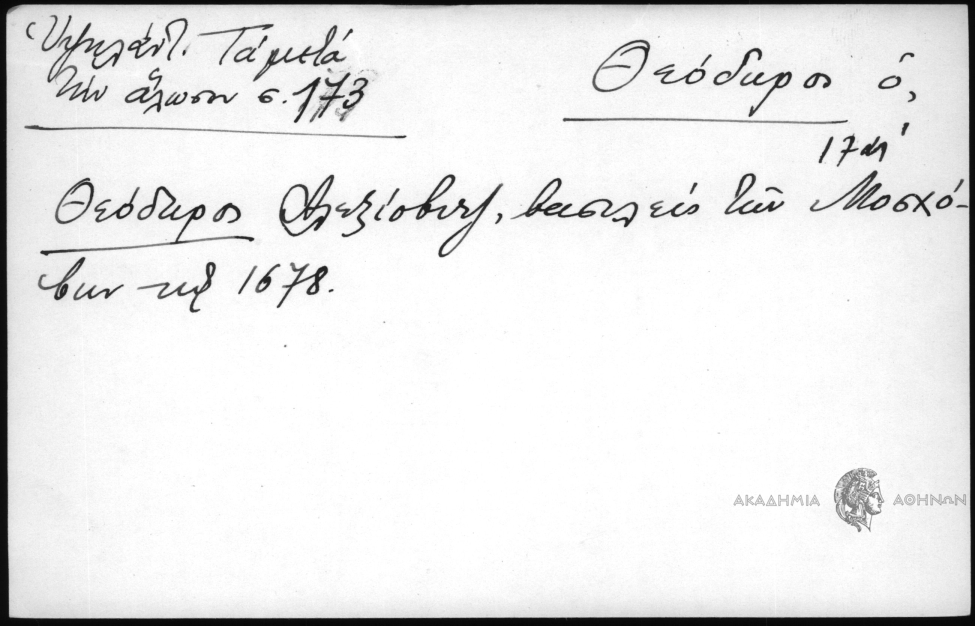 Ὑψηλάντ. Τά μετά
τὴν ἅλωσιν σ. 173
Θεόδωρος ὁ,
17αι
Θεόδωρος Ἀλεξίοβιτζ, βασιλεύς τῶν Μοσχό-
βων τῷ 1678.
ΑΚΑΔΗΜΙΑ ΑΘΗΝΩΝ